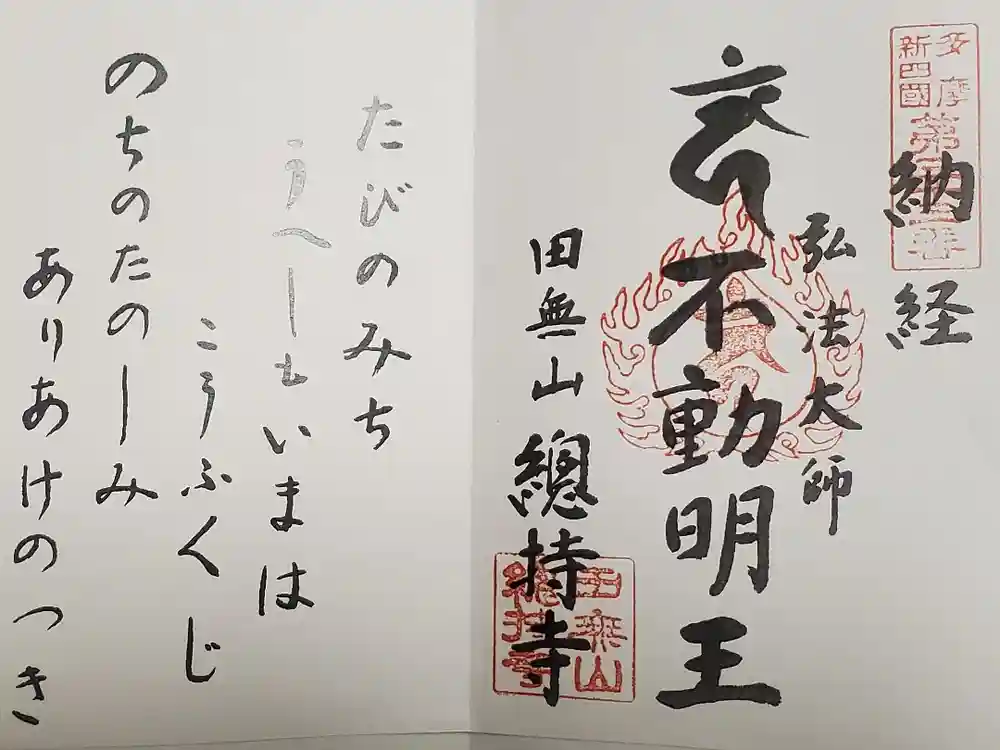 多摩
新四國
第
番
納経
弘法大師
不動明王
田無山 總持寺
田無山
總持寺
たびのみち
うへしもいまは
こうふくじ
のちのたのしみ
ありあけのつき